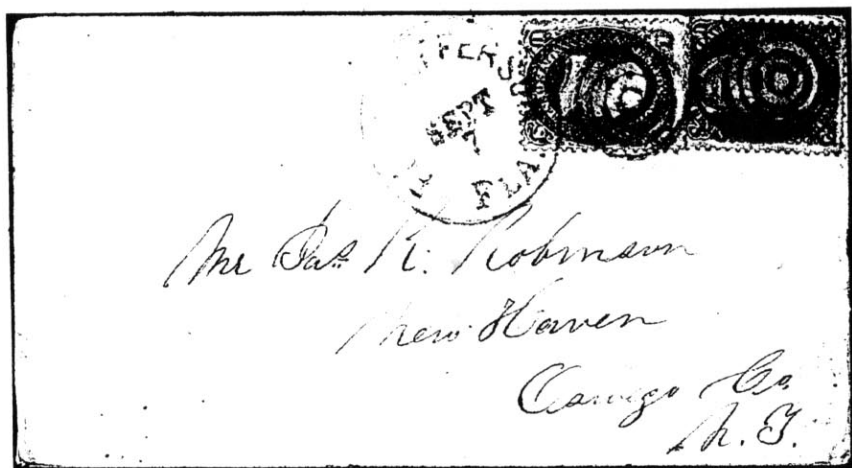 SEPT
7
FLA.
Mr Jas. R. Robinson
New Haven
Oswego Co.
N.Y.